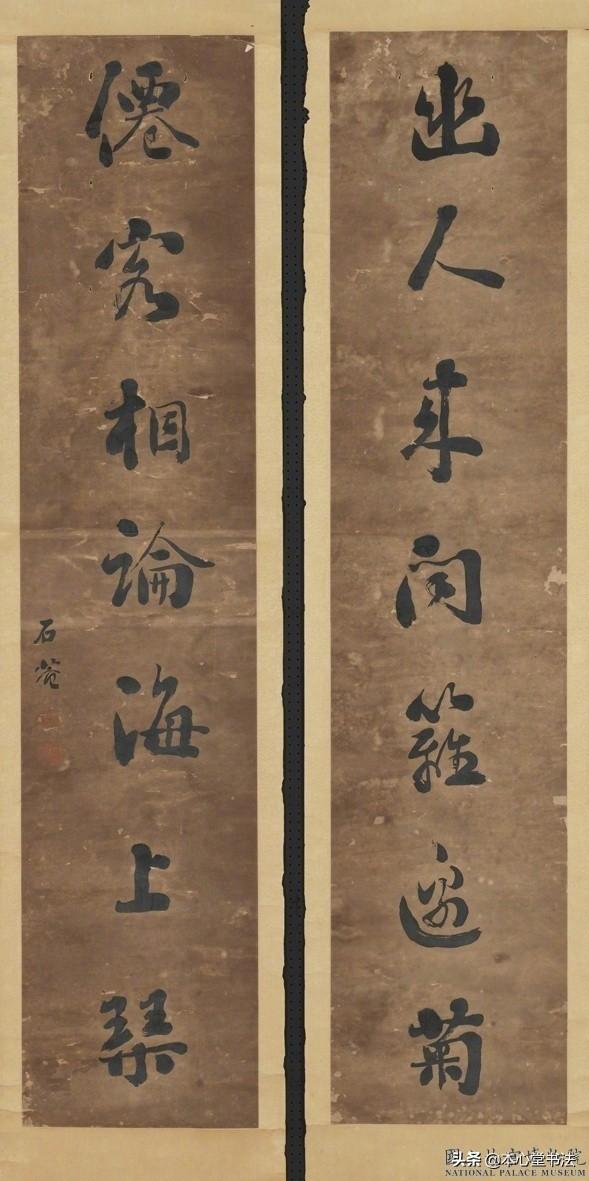 幽人来問籬邊菊
僊客相論海上琴
石菴
头条 @本心堂书法
NATIONAL PALACE MUSEUM